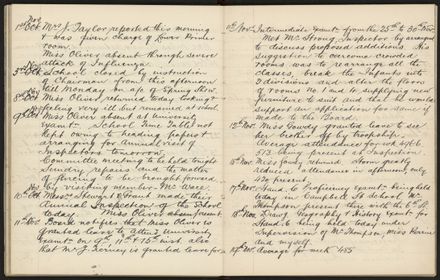 Nov
1st Oct Mr J. Taylor reported this morning
& was given charge of lower Primer
room.
Miss Oliver absent through severe
attack of Influenza.
School closed by instruction
of Chairman from this afternoon
till Monday on a/c of Spring Show.
Miss Oliver returned today looking &
feeling very ill but remained at school.
Miss Oliver absent at University
Exam. School Time Table not
kept owing to heading papers &
arranging for Annual visit of
Inspectors tomorrow.
Committee meeting to be held tonight
Sundry repairs and the matter
of fencing to be brought forward
by visiting member Mr Wace.
10th Messrs Stewart & Grant made their
Annual Inspection of the School
today. Miss Oliver absent, exam.
11th Board notifies that Miss Oliver is
granted leave to attend University
exam on 9th, 11th & 15th inst. also
that Mr J. Tierney is granted leave for
10th Nov. Intermediate Exam from the 25th to 30th Nov
Met Mr Strong Inspector by arrangement
to discuss proposed additions. His
suggestion to overcome crowded
rooms was to rearrange all the
classes, break the Infants into
3 divisions and alter the floor
of room No. 1 and to supply new
furniture to suit and that he would
support an application for same if
made to the Board.
12th Nov. Miss Gowdy granted leave to see
her brother off by troopship.
Average attendance for wk 496.6
573 being present at inspection.
15th Nov. Miss Gowdy returned. Storm greatly
reduced attendance in afternoon, only
412 present
17th Nov. Stand. 6 Proficiency Exam being held
today in Campbell St School. Mr
Thompson present there with the 6th St.
18th Nov. Drawg. Geography & History Exam for
Stand. 6 being held today under
Supervision of Mr Thompson, Miss
and myself.
19th Nov. Average for week 485